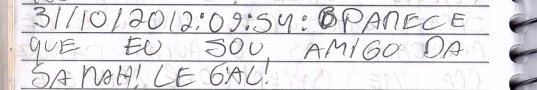 31/10/2012:09:54: PARECE
QUE EU SOU AMIGO DA
SARAH! LEGAL!